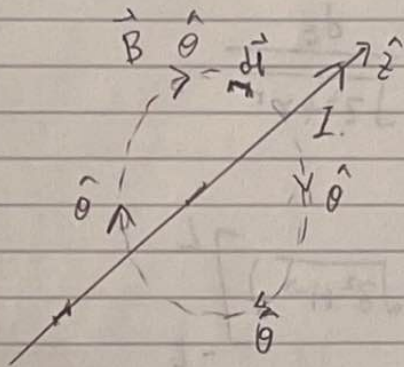 B⃗ θ̂ dl⃗ ẑ
I.
θ̂ θ̂
θ̂